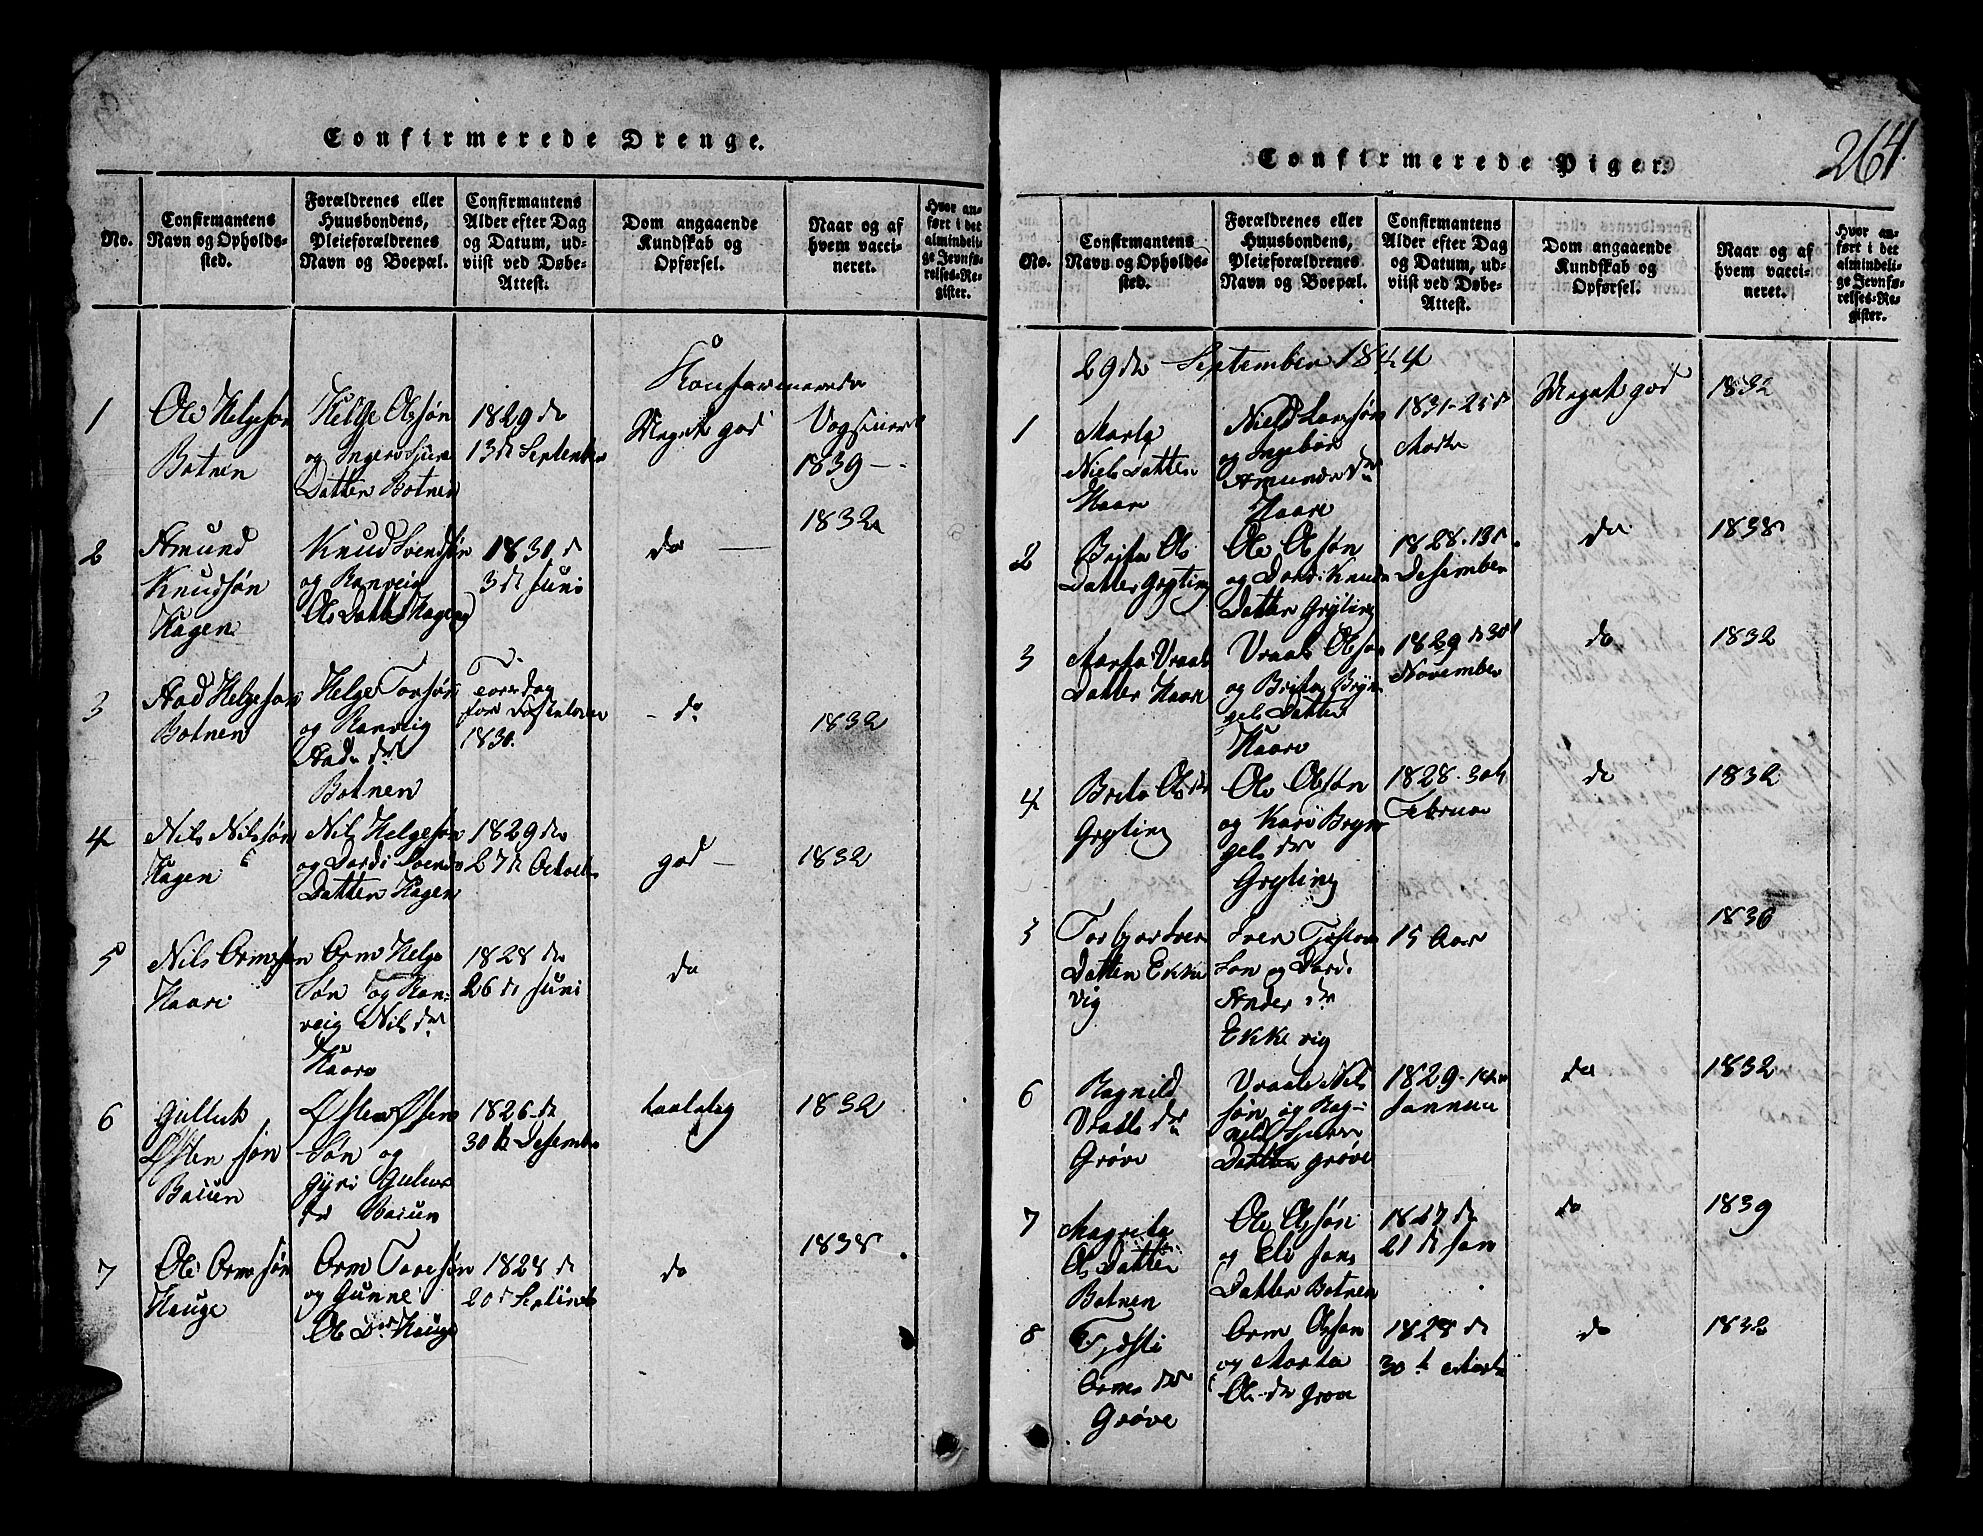 Confirmerede Drenge.
No.
Confirmantens
Navn og Opholds-
sted.
Forældrenes eller
Huusbondens,
Pleieforældrenes
Navn og Boepæl.
Confirmantens
Alder efter Dag
og Datum, ud-
viist ved Døbe-
Attest.
Dom angaaende
Kundskab og
Opførsel.
Naar og af
hvem vacci-
neret.
Hvor an-
ført i det
almindeli-
ge Jevnfø-
relses-Re-
gister.
1
Ole Helgeson
Botnen
Helge Olsøn
og Inger
Datter Botnen
1829 de
13de September
Konfarmerede
Meget god
1839
2
Amund
Knudsøn
Hagen
Knud Svendsøn
og Ranveig
Ols Datter Hagen
1830 d
3de Juni
do
1832
3
Aad Helgeson
Botnen
Helge Torsøn
og Ranveig
Aads dr
Botnen
1830.
do
1832
4
Nils Nilsøn
Hagen
Nils Helgeson
og Dordi Svends
Datter Hagen
1829 de
27de October
god
1832
5
Nils Ormsøn
Haare
Orm Helge
Søn og Ran-
veig Nils dr
Haare
1828 de
26 de Juni
do
6
Gulluk
Østen søn
Baiun
Østen Østen
Søn og
Gyri
dr Baiun
1826 de
30te Desember
taalelig
1832
7
Ole Orm søn
Hauge
Orm Toresøn
og Gunne
Ols Dr Hauge
1828 d
20d September
do
1838
264
Confirmerede Piger.
No.
Confirmantens
Navn og Opholds-
sted.
Forældrenes eller
Huusbondens,
Pleieforældrenes
Navn og Boepæl.
Confirmantens
Alder efter Dag
og Datum, ud-
viist ved Døbe-
Attest.
Dom angaaende
Kundskab og
Opførsel.
Naar og af
hvem vacci-
neret.
Hvor an-
ført i det
almindeli-
ge Jevnfø-
relses-Re-
gister.
29de September 1844
1
Marta
Niels Datter
Haare
Nield Larsøn
og Ingebor
Amunds dr
Haare
1831-25d
Marts
Meget god
1832
2
Brita Ols
Datter Gryting
Ole Olsøn
og Dordi Knuds
Datter Gryting
1828-13d
Desember
do
1838
3
Marta Vraals
Datter Haare
Vraal Olson
og Brita Bryn
gels Datter
Haare
1829 d 30d
November
do
1832
4
Brita Ols dr
Gryting
Ole Olsøn
og Kari Bryn
gels dr
Gryting
1828-30te
Februar
do
1832
5
Torbjor Sven
Datter Ekke
vig
Sven Tjøstov
Son og Dordi
Anders dr
Ekke vig
15 Aar
1836
6
Ragnild
Vraals dr
Grøve
Vraale Nils
søn og Rag-
nild Sjurs
Datter Grøve
1829-14
Januar
do
1832
7
Magrita
Ols Datter
Botnen
Ole Olsøn
og Eli Jans
Datter Botnen
1827 de
21 de Jan
do
1839
8
Tjøsti
Orms dr
Grøve
Orm Olsøn
og Marta
Ols dr Grove
1828 de
30te Marts
do
1832